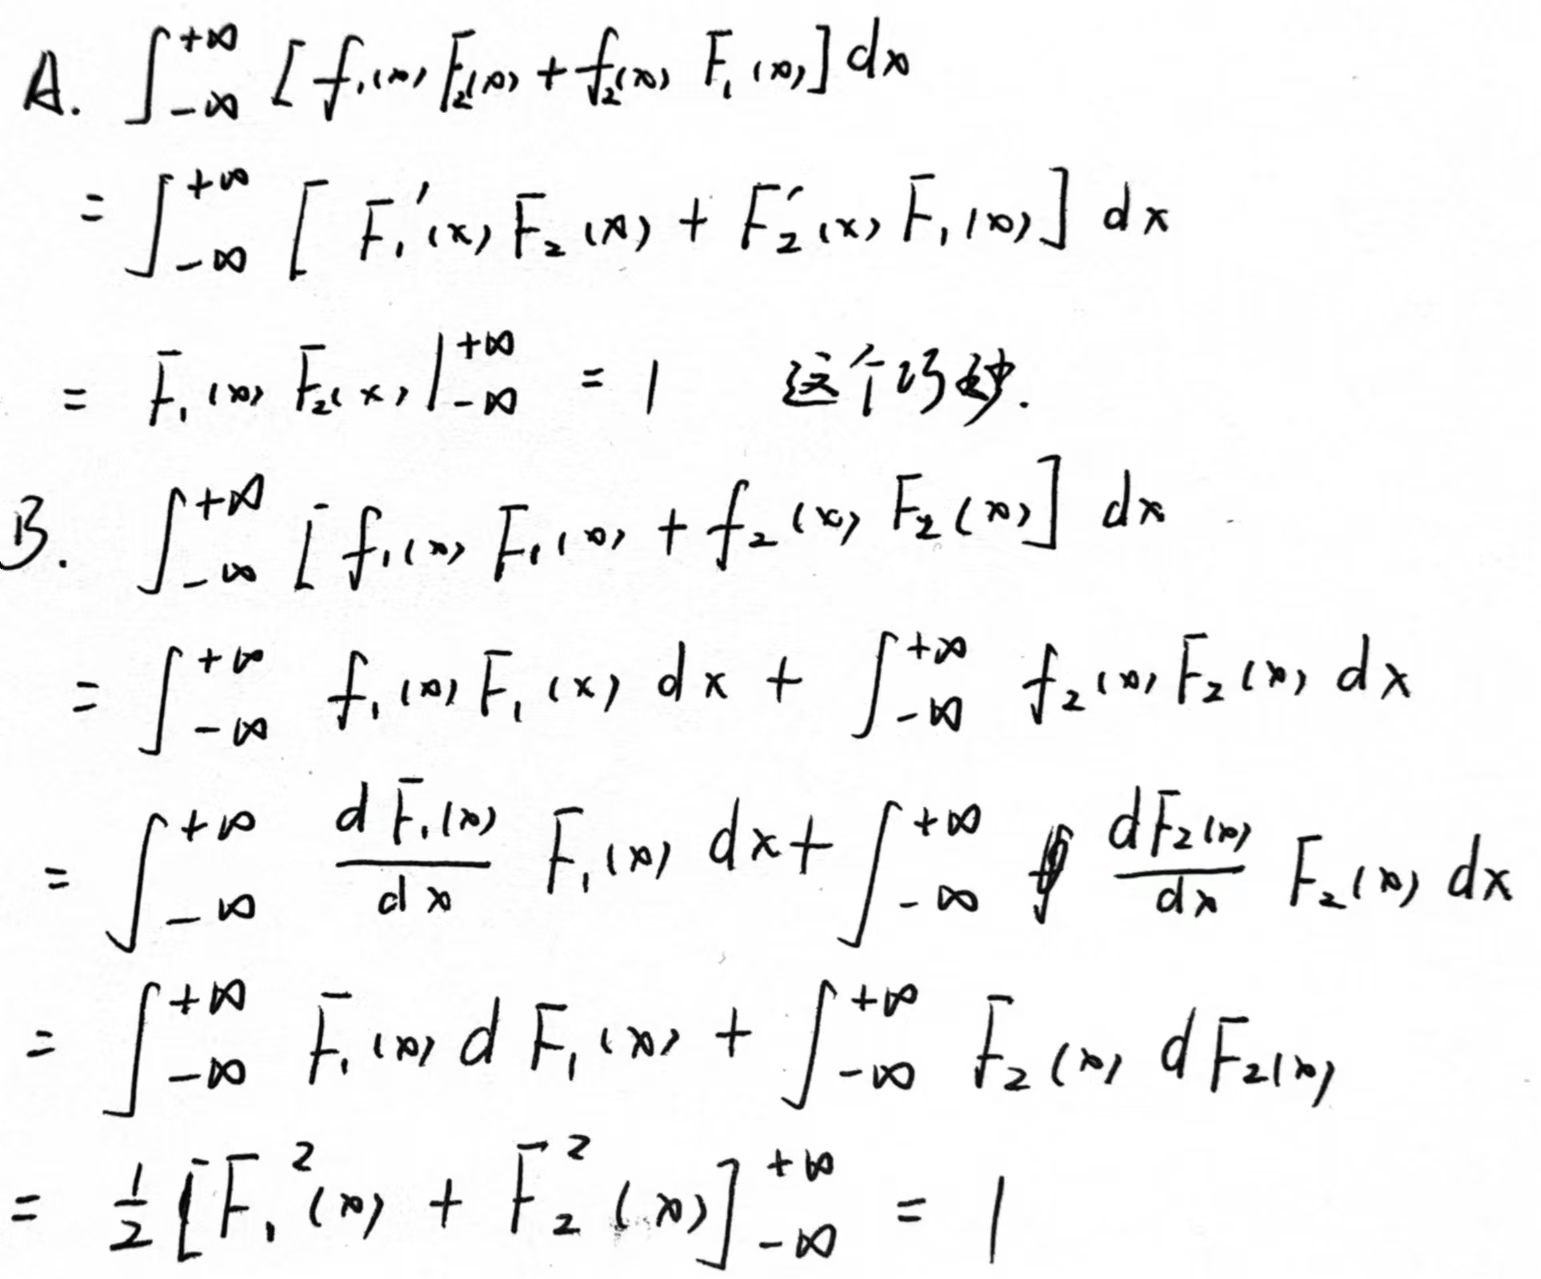 A. ∫_{-∞}^{+∞} [f₁(x) F₂(x) + f₂(x) F₁(x)] dx
= ∫_{-∞}^{+∞} [F₁'(x) F₂(x) + F₂'(x) F₁(x)] dx
= F₁(x) F₂(x) |_{-∞}^{+∞} = 1 这个巧妙.
B. ∫_{-∞}^{+∞} [f₁(x) F₁(x) + f₂(x) F₂(x)] dx
= ∫_{-∞}^{+∞} f₁(x) F₁(x) dx + ∫_{-∞}^{+∞} f₂(x) F₂(x) dx
= ∫_{-∞}^{+∞} \frac{dF₁(x)}{dx} F₁(x) dx + ∫_{-∞}^{+∞} \frac{dF₂(x)}{dx} F₂(x) dx
= ∫_{-∞}^{+∞} F₁(x) d F₁(x) + ∫_{-∞}^{+∞} F₂(x) d F₂(x)
= \frac{1}{2} [F₁²(x) + F₂²(x)]_{-∞}^{+∞} = 1